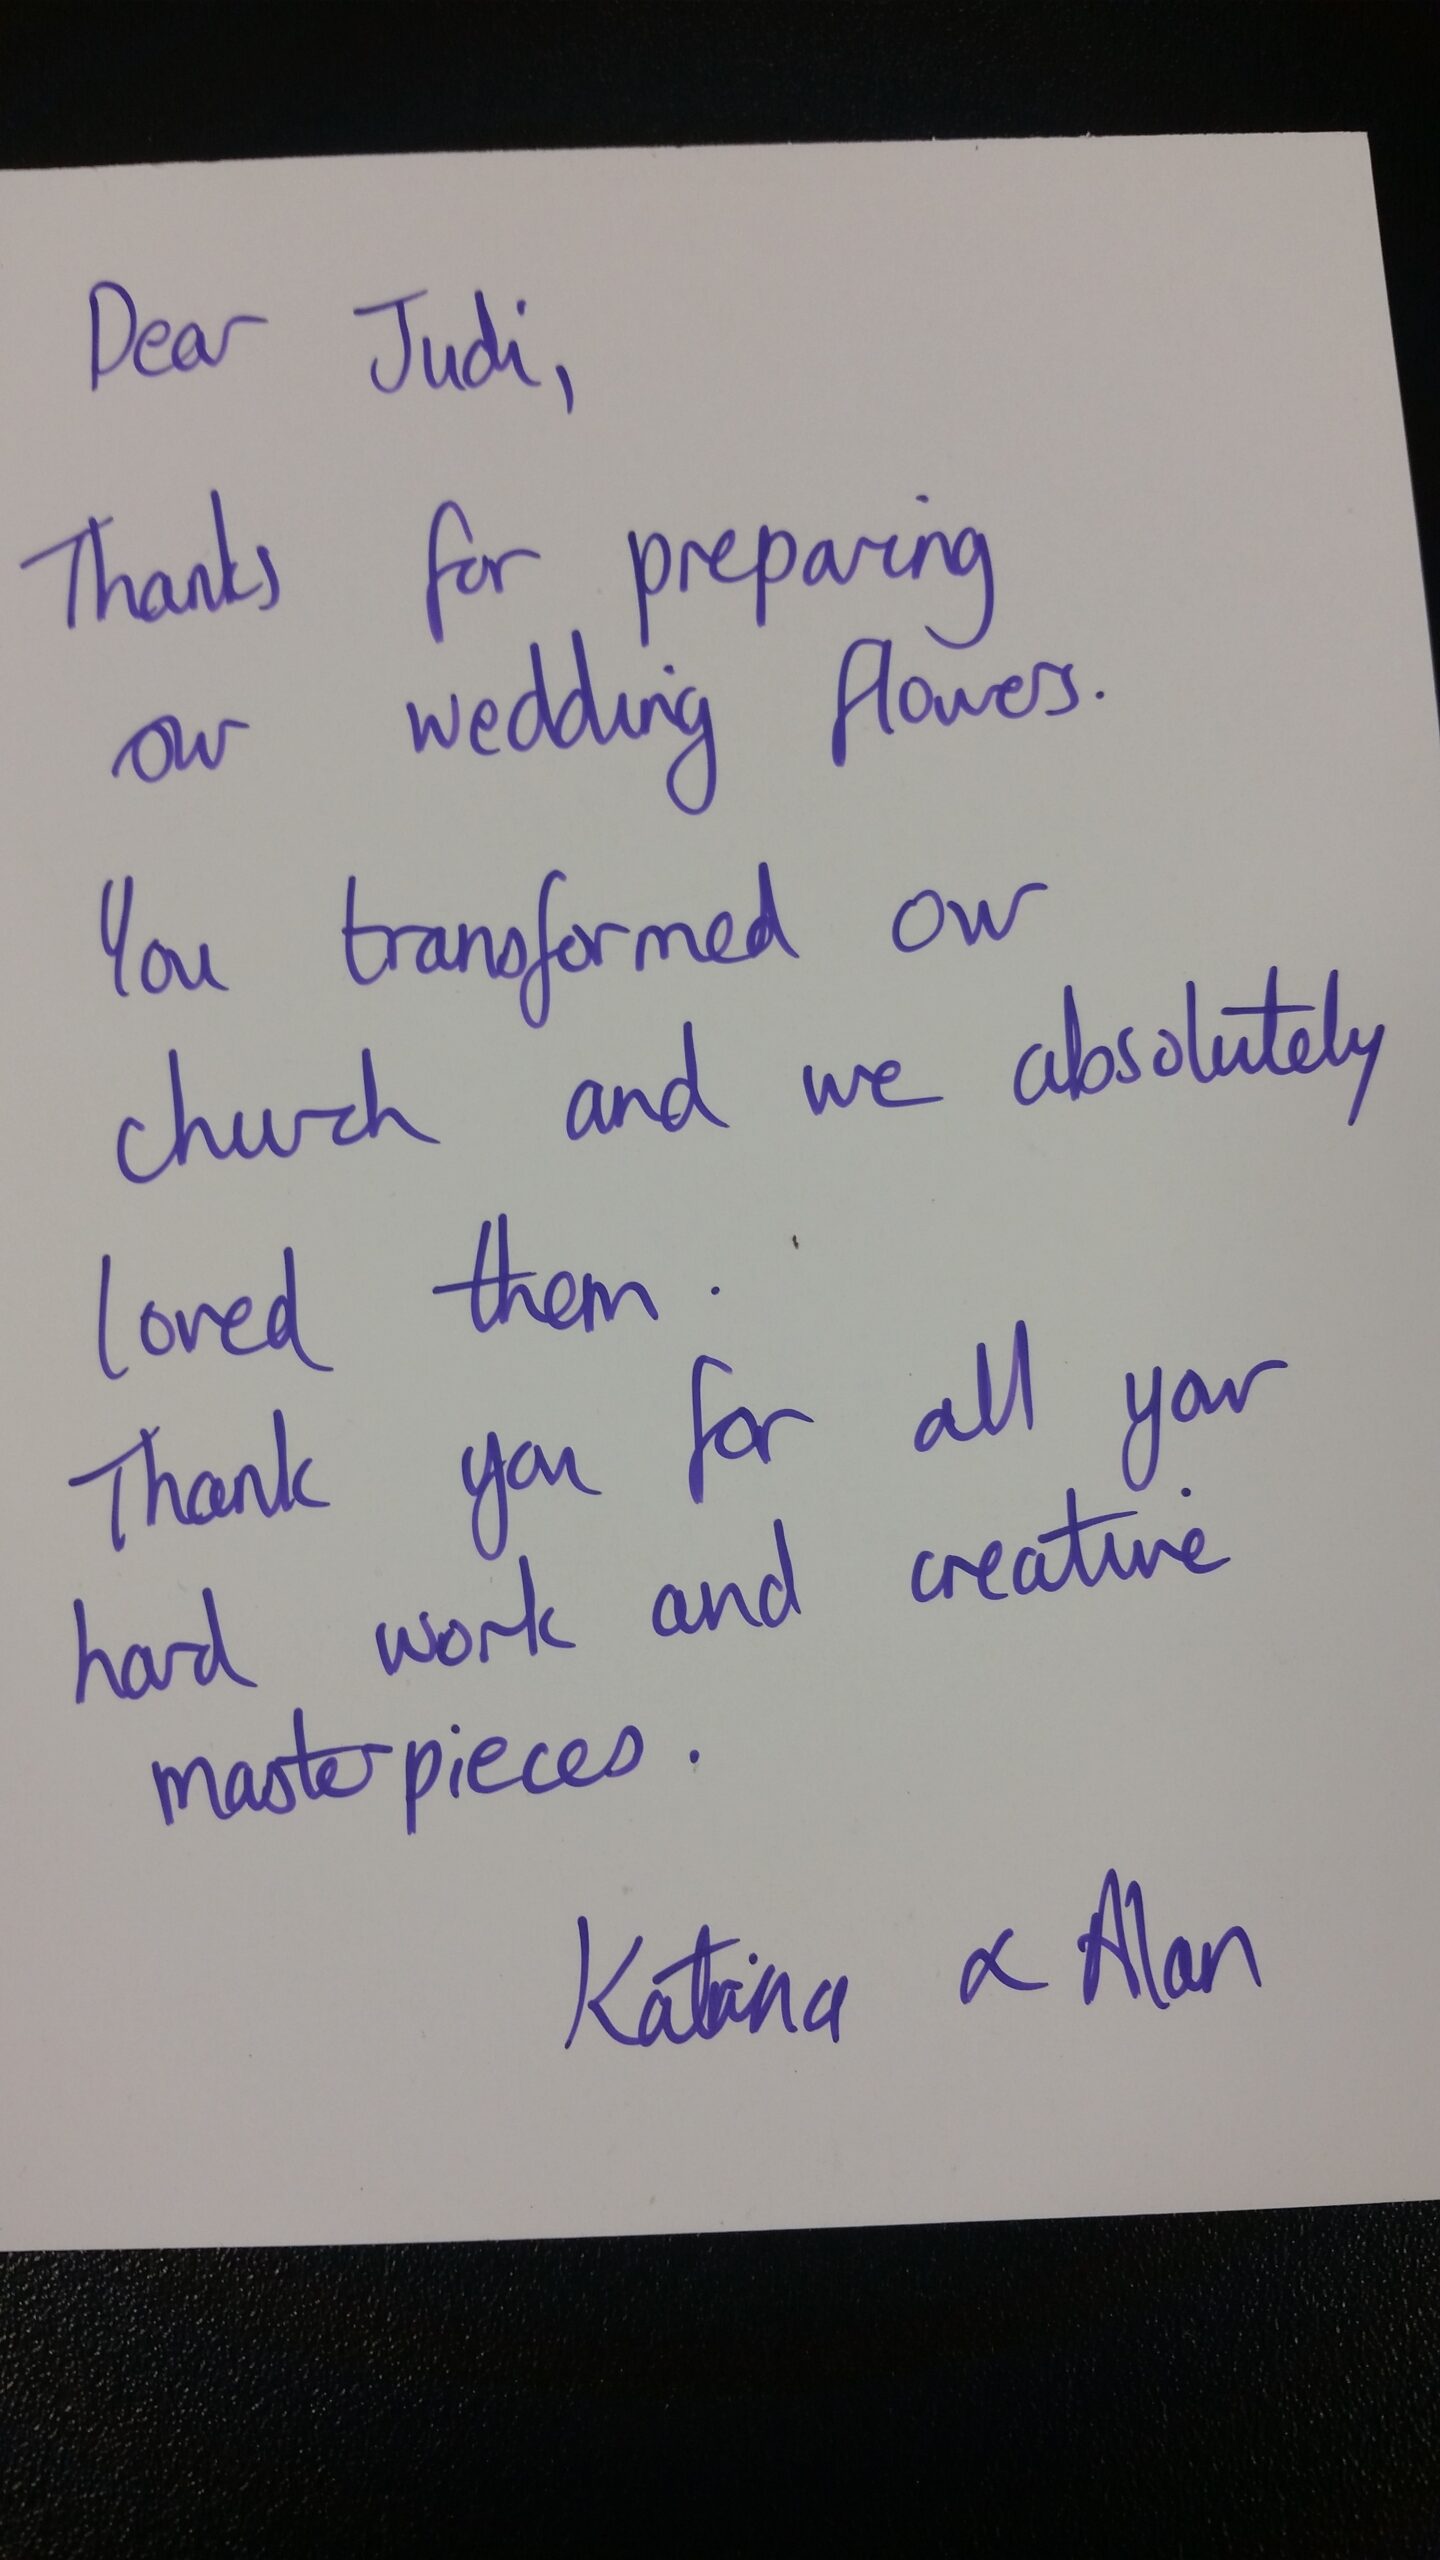 Dear Judi,
Thanks for preparing
our wedding flowers.
You transformed our
church and we absolutely
loved them.
Thank you for all your
hard work and creative
masterpieces.
Katrina & Alan